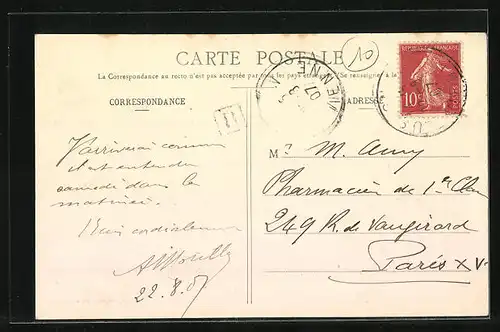 CARTE POSTALE
La Correspondance au recto n'est pas acceptée par tous les pays étrangers (Se renseigner à la
CORRESPONDANCE
ADRESSE
RÉPUBLIQUE FRANÇAISE
10
POSTES
VIENNE
07
10
J'arriverai comme
il est entendu
samedi dans la
matinée.
Bien cordialement
22.8.07
M. M. Amy
Pharmacien de 1re Classe
249 R. de Vaugirard
Paris XV